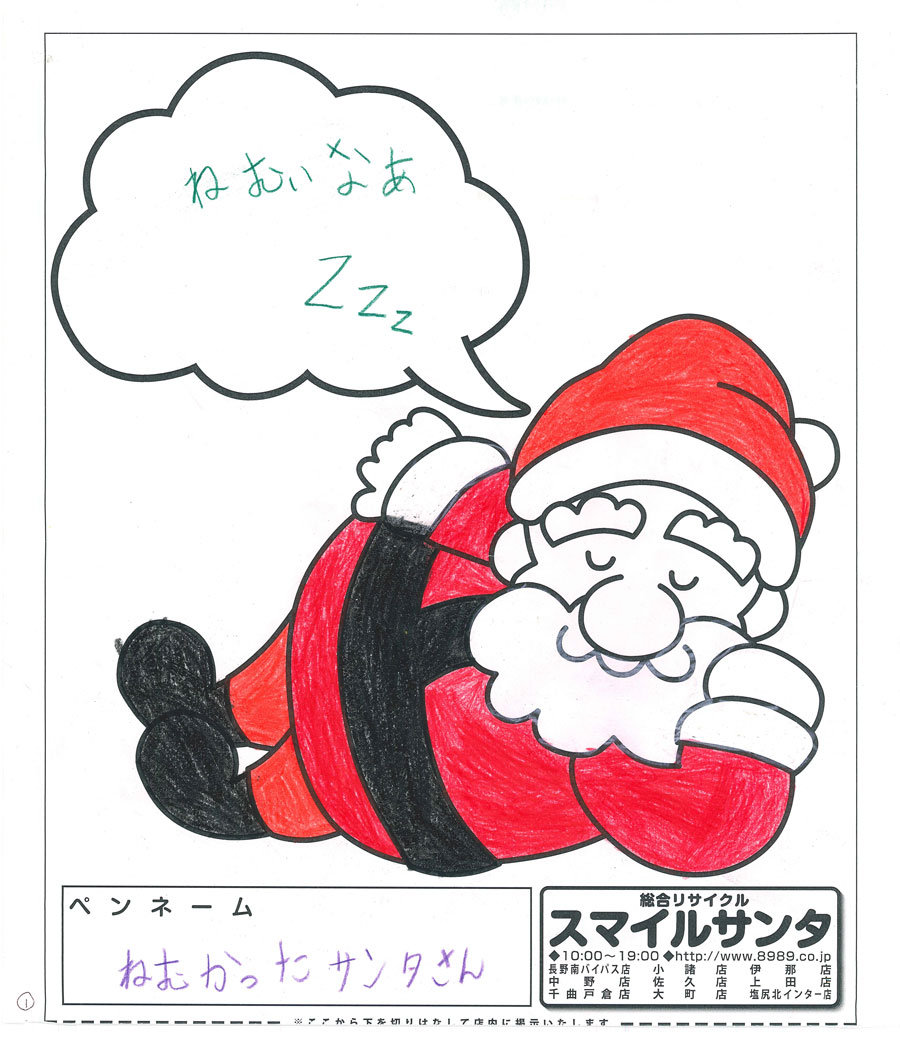 ねむいなあ
Zzz
ペンネーム
ねむかったサンタさん
総合リサイクル
スマイルサンタ
◆10:00〜19:00◆http://www.8989.co.jp
長野南バイパス店 小諸店 伊那店
中野店 佐久店 上田店
千曲戸倉店 大町店 塩尻北インター店
①
※ここから下を切りはなして店内に掲示いたします